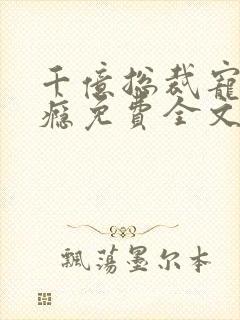 千億总裁寵
瘾免費全文
飄蕩墨尔本